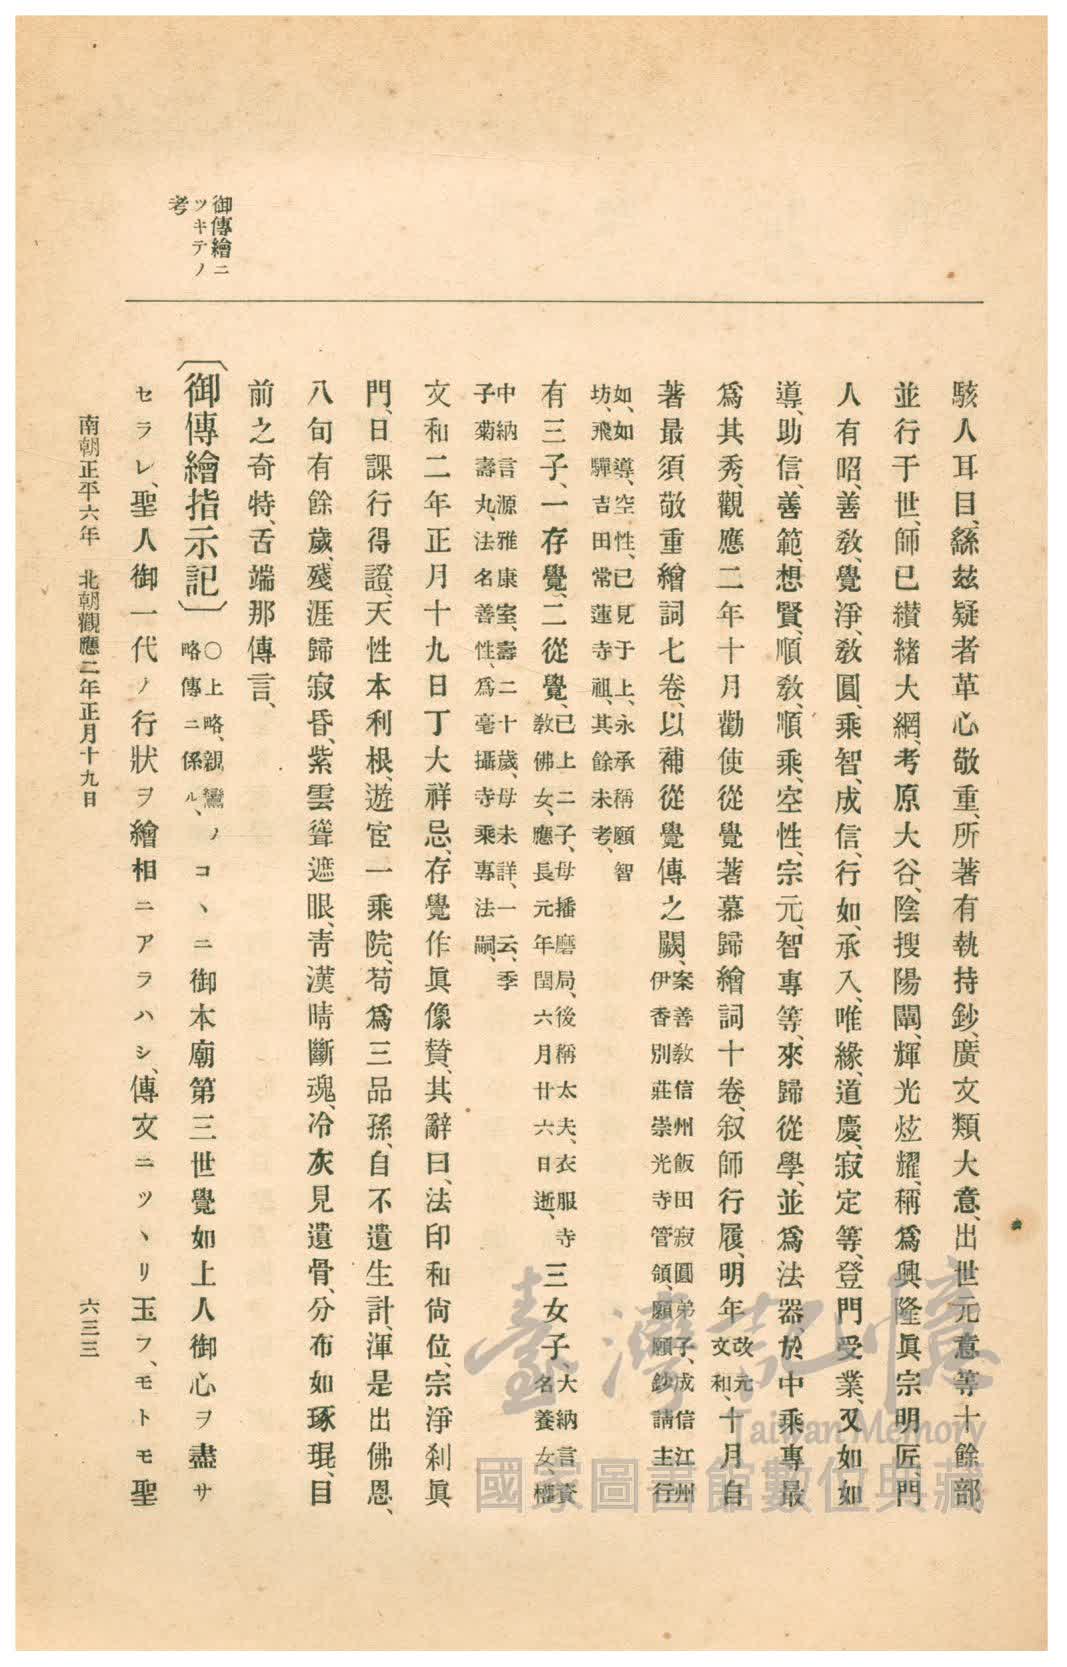 御傳繪ニ
ツキテノ
考
駭人耳目、繇玆疑者革心敬重、所著有執持鈔、廣文類大意、出世元意等十餘部
並行于世、師已纉緒大網、考原大谷、陰搜陽闡、輝光炫耀、稱爲興隆眞宗明匠、門
人有昭、善敎、覺淨、敎圓、乘智、成信、行如、承入、唯緣、道慶、寂定等、登門受業、又如如
導、助信、善範、想賢、順敎、順乘、空性、宗元、智專等、來歸從學、並爲法器於中乘專最
爲其秀、觀應二年十月勸使從覺著慕歸繪詞十卷、叙師行履、明年改元文和、十月自
著最須敬重繪詞七卷、以補從覺傳之闕、案善敎信州飯田寂圓弟子、成信江州
伊香別莊崇光寺管領、願願鈔請主行
如、如導、空性、已見于上、永承稱願智
坊、飛驒吉田常蓮寺祖、其餘未考、
有三子、一存覺、二從覺、已上二子、母播磨局、後稱太夫、衣服寺
敎佛女、應長元年閏六月廿六日逝、三女子、大納言資
名養女、權
中納言源雅康室、壽二十歲、母未詳、一云、季
子菊壽丸、法名善性、爲毫攝寺乘專法嗣、
文和二年正月十九日丁大祥忌、存覺作眞像贊、其辭曰、法印和尙位、宗淨刹眞
門、日課行得證、天性本利根、遊宦一乘院、苟爲三品孫、自不遺生計、渾是出佛恩、
八旬有餘歲、殘涯歸寂昏、紫雲聳遮眼、靑漢晴斷魂、冷灰見遺骨、分布如琢琨、目
前之奇特、舌端那傳言、
〔御傳繪指示記〕〇上略、親鸞ノ
略傳ニ係ル、コヽニ御本廟第三世覺如上人御心ヲ盡サ
セラレ、聖人御一代ノ行狀ヲ繪相ニアラハシ、傳文ニツヾリ玉フ、モトモ聖
南朝正平六年 北朝觀應二年正月十九日
六三三
臺灣記憶
Taiwan Memory
國家圖書館數位典藏